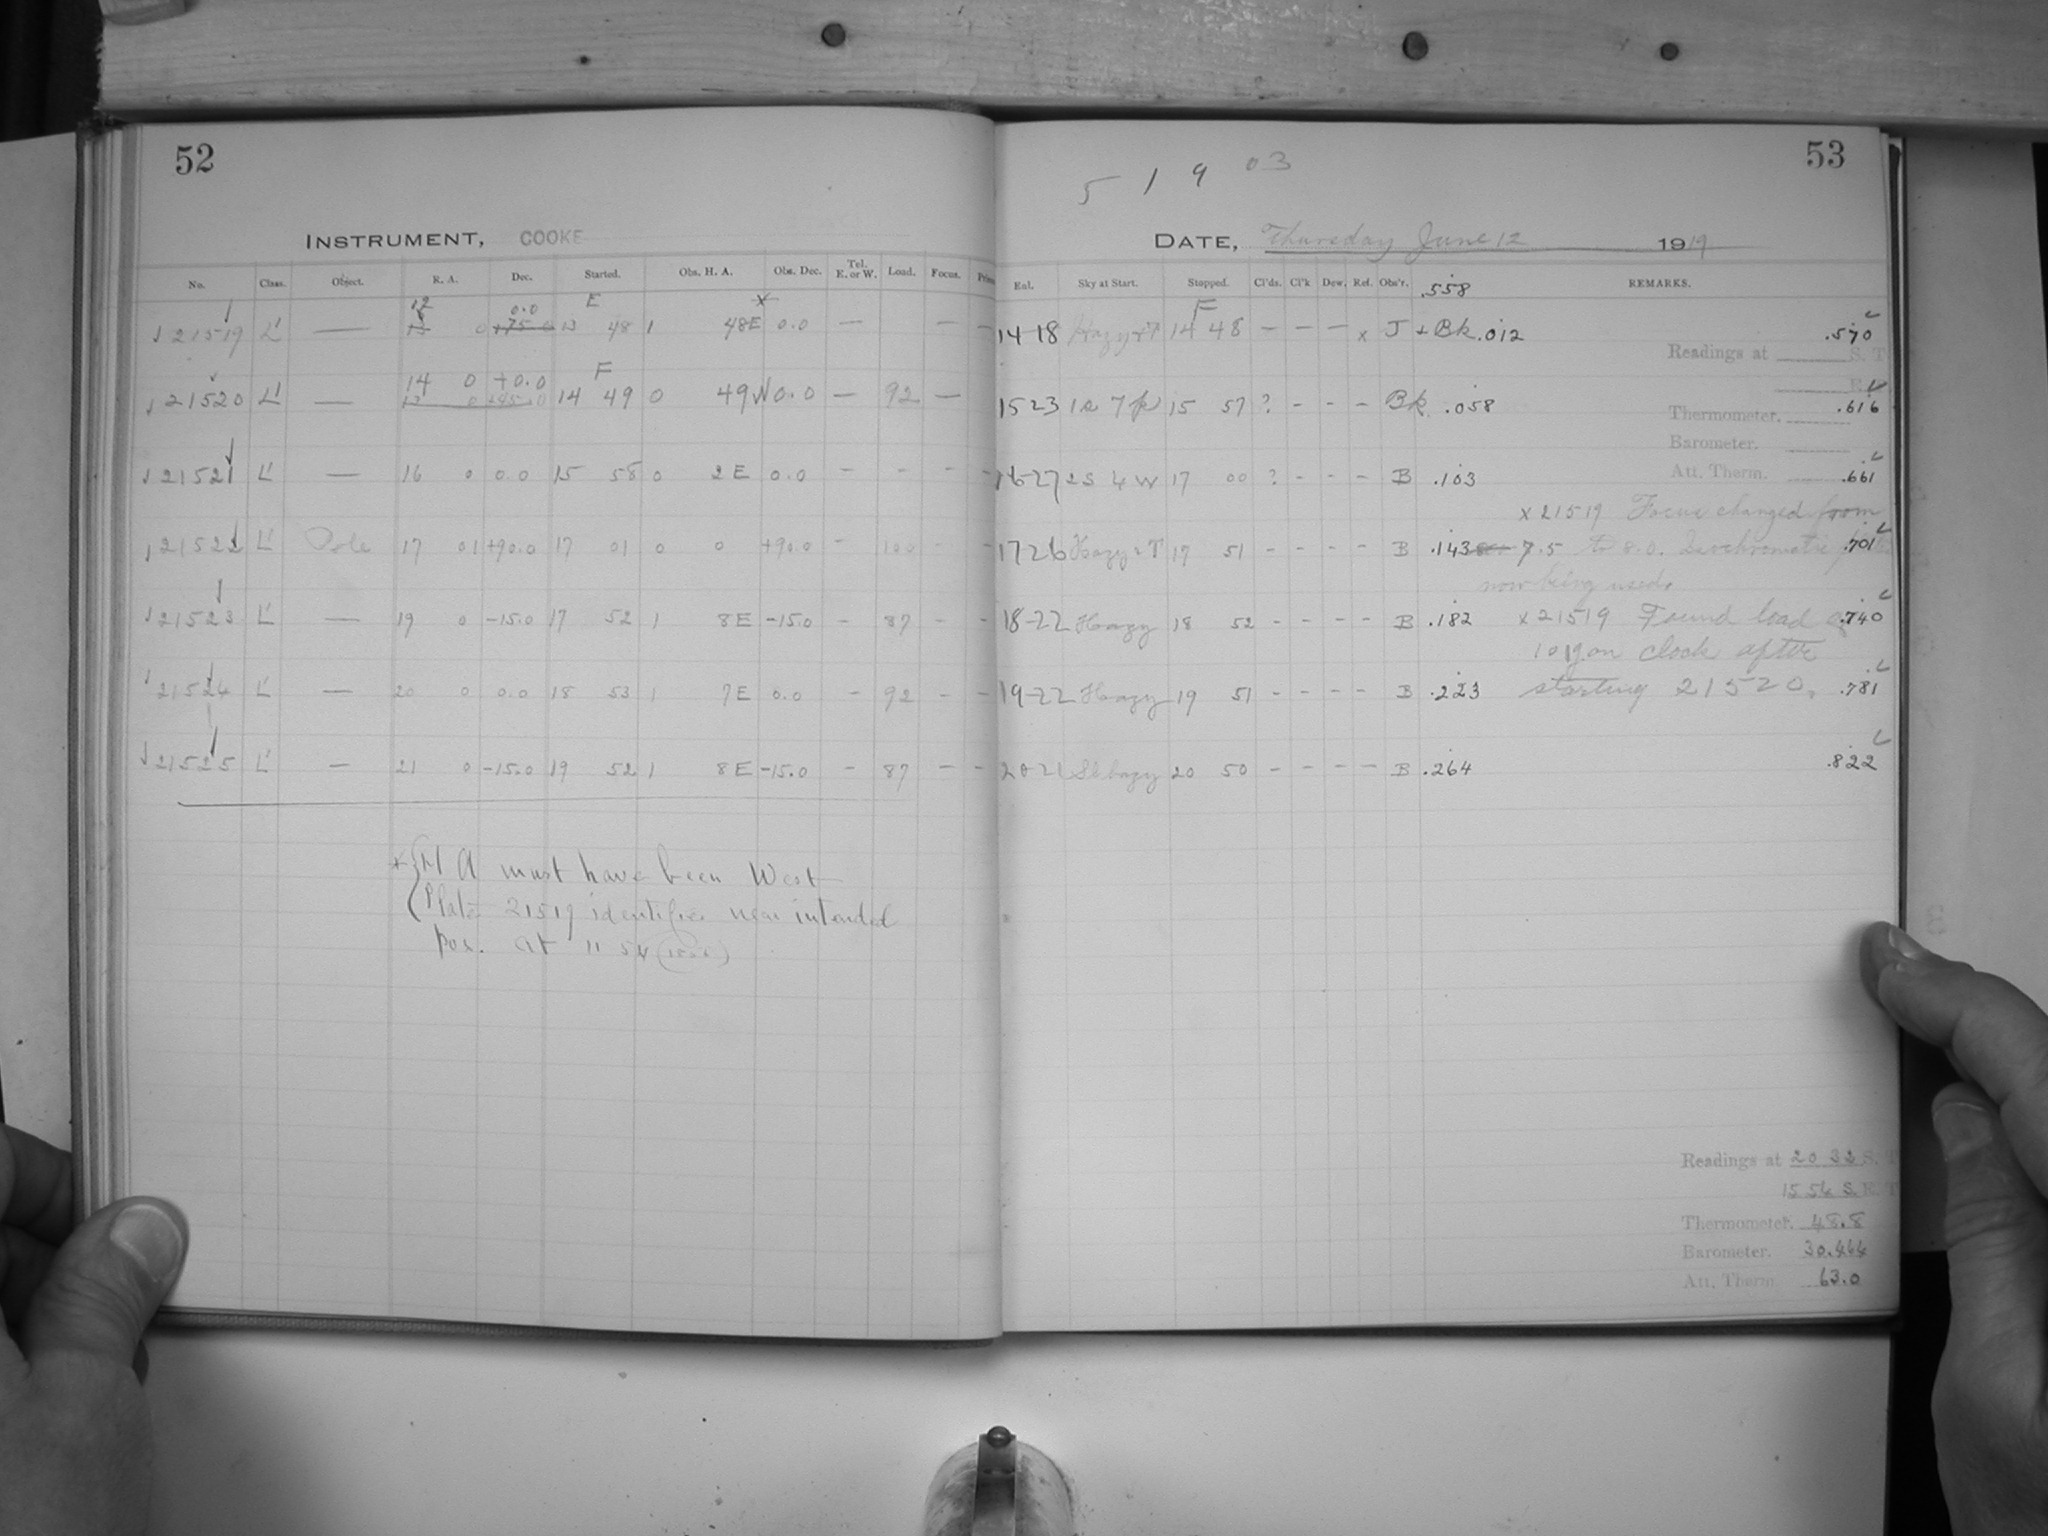 52
INSTRUMENT, COOKE
No. Class. Object. R. A. Dec. Started. Obs. H. A. Obs. Dec. Tel. E. or W. Load. Focus.
21519 L' — 12 13 0 0.0 +75 0 E 13 48 1 48E x 0.0 — —
21520 L' — 14 0 +0.0 F 14 49 0 49W 0.0 — 92 —
21521 L' — 16 0 0.0 15 58 0 2E 0.0 - - -
21522 L' Pole 17 01 +90.0 17 01 0 0 +90.0 - 100 -
21523 L' — 19 0 -15.0 17 52 1 8E -15.0 - 87 -
21524 L' — 20 0 0.0 18 53 1 7E 0.0 - 92 -
21525 L' — 21 0 -15.0 19 52 1 8E -15.0 - 87 -
* H A must have been West
Plate 21519 identifies near intended
pos. at 11 54
53
5 1 9 03
DATE, Thursday June 12 1919
Sky at Start. Stopped. Cl'ds. Cl'k Dew. Ref. Obs'r. .558 REMARKS.
14-18 Hazy+T F 14 48 — — — x J + Bk .012 .570
Readings at S. T
1523 1s 7p 15 57 ? - - - Bk .058 .616
Thermometer.
Barometer.
Att. Therm.
16-27 2S 4W 17 00 ? - - - B .103 .661
x 21519 Focus changed from
1726 Hazy+T 17 51 - - - - B .143 7.5 to 8.0. Isochromatic .701
now being used.
18-22 Hazy 18 52 - - - - B .182 x 21519 Found load .740
on clock after
19-22 Hazy 19 51 - - - - B .223 starting 21520. .781
2021 Sl hazy 20 50 - - - - B .264 .822
Readings at 20 32 S. T
15 54 S. E. T
Thermometer. 48.8
Barometer. 30.464
Att. Therm. 63.0